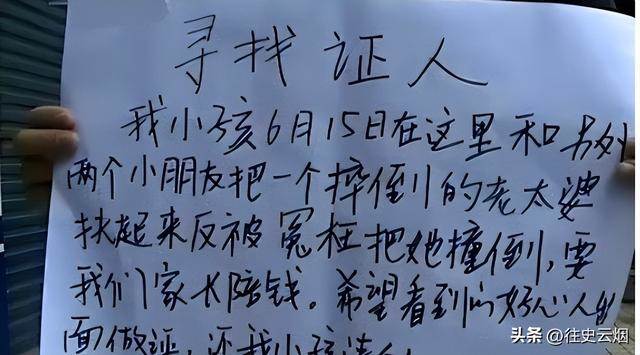 寻找证人
我小孩6月15日在这里和另外
两个小朋友把一个摔倒的老太婆
扶起来反被冤枉把她撞倒,要
我们家长陪钱。希望看到的好心人出
面做证,还我小孩清白
头条 @往史云烟